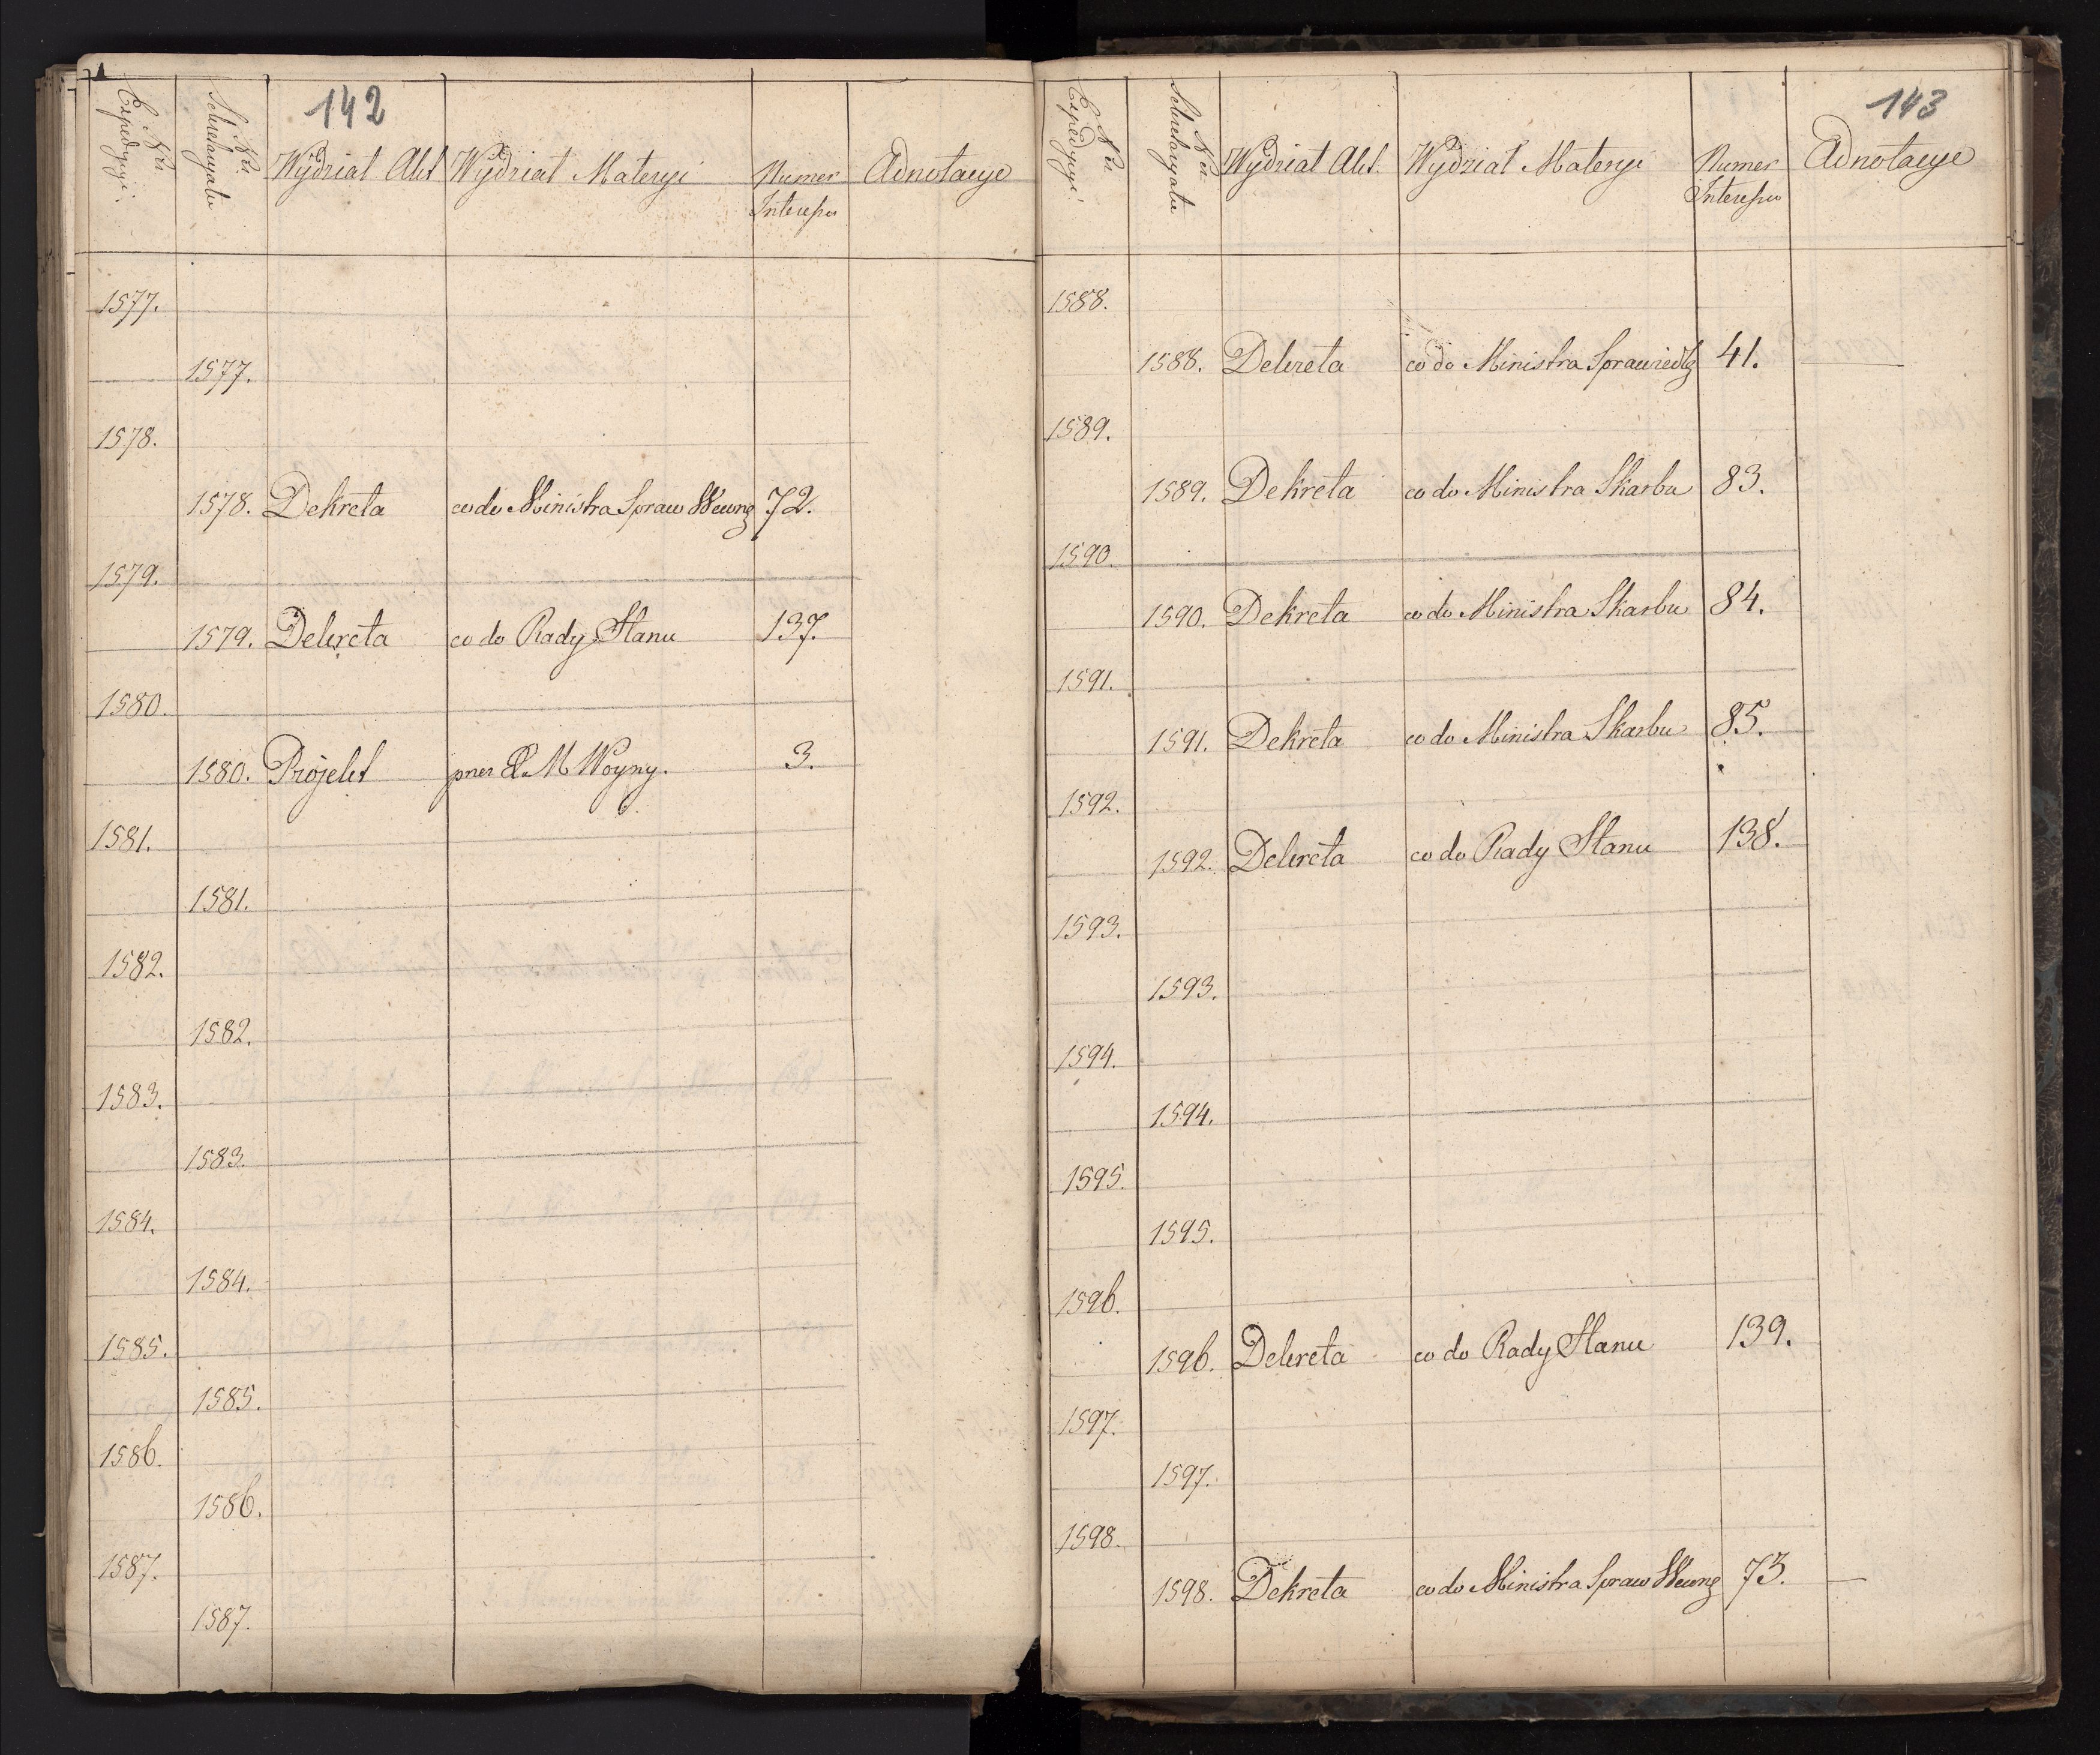 142
Nr Expedycyi.
Nr Sekretaryatu
Wydział Akt
Wydział Materyi
Numer Interessu
Adnotacye
1577.
1577.
1578.
1578. Dekreta co do Ministra Spraw Wewng 72.
1579.
1579. Dekreta co do Rady Stanu 137.
1580.
1580. Projekt przez M Woyny. 3.
1581.
1581.
1582.
1582.
1583.
1583.
1584.
1584.
1585.
1585.
1586.
1586.
1587.
1587.
143
Nr Expedycyi.
Nr Sekretaryatu
Wydział Akt.
Wydział Materyi
Numer Interessu
Adnotacye
1588.
1588. Dekreta co do Ministra Sprawiedlg 41.
1589.
1589. Dekreta co do Ministra Skarbu 83.
1590.
1590. Dekreta co do Ministra Skarbu 84.
1591.
1591. Dekreta co do Ministra Skarbu 85.
1592.
1592. Dekreta co do Rady Stanu 138.
1593.
1593.
1594.
1594.
1595.
1595.
1596.
1596. Dekreta co do Rady Stanu 139.
1597.
1597.
1598.
1598. Dekreta co do Ministra Spraw Wewng 73.